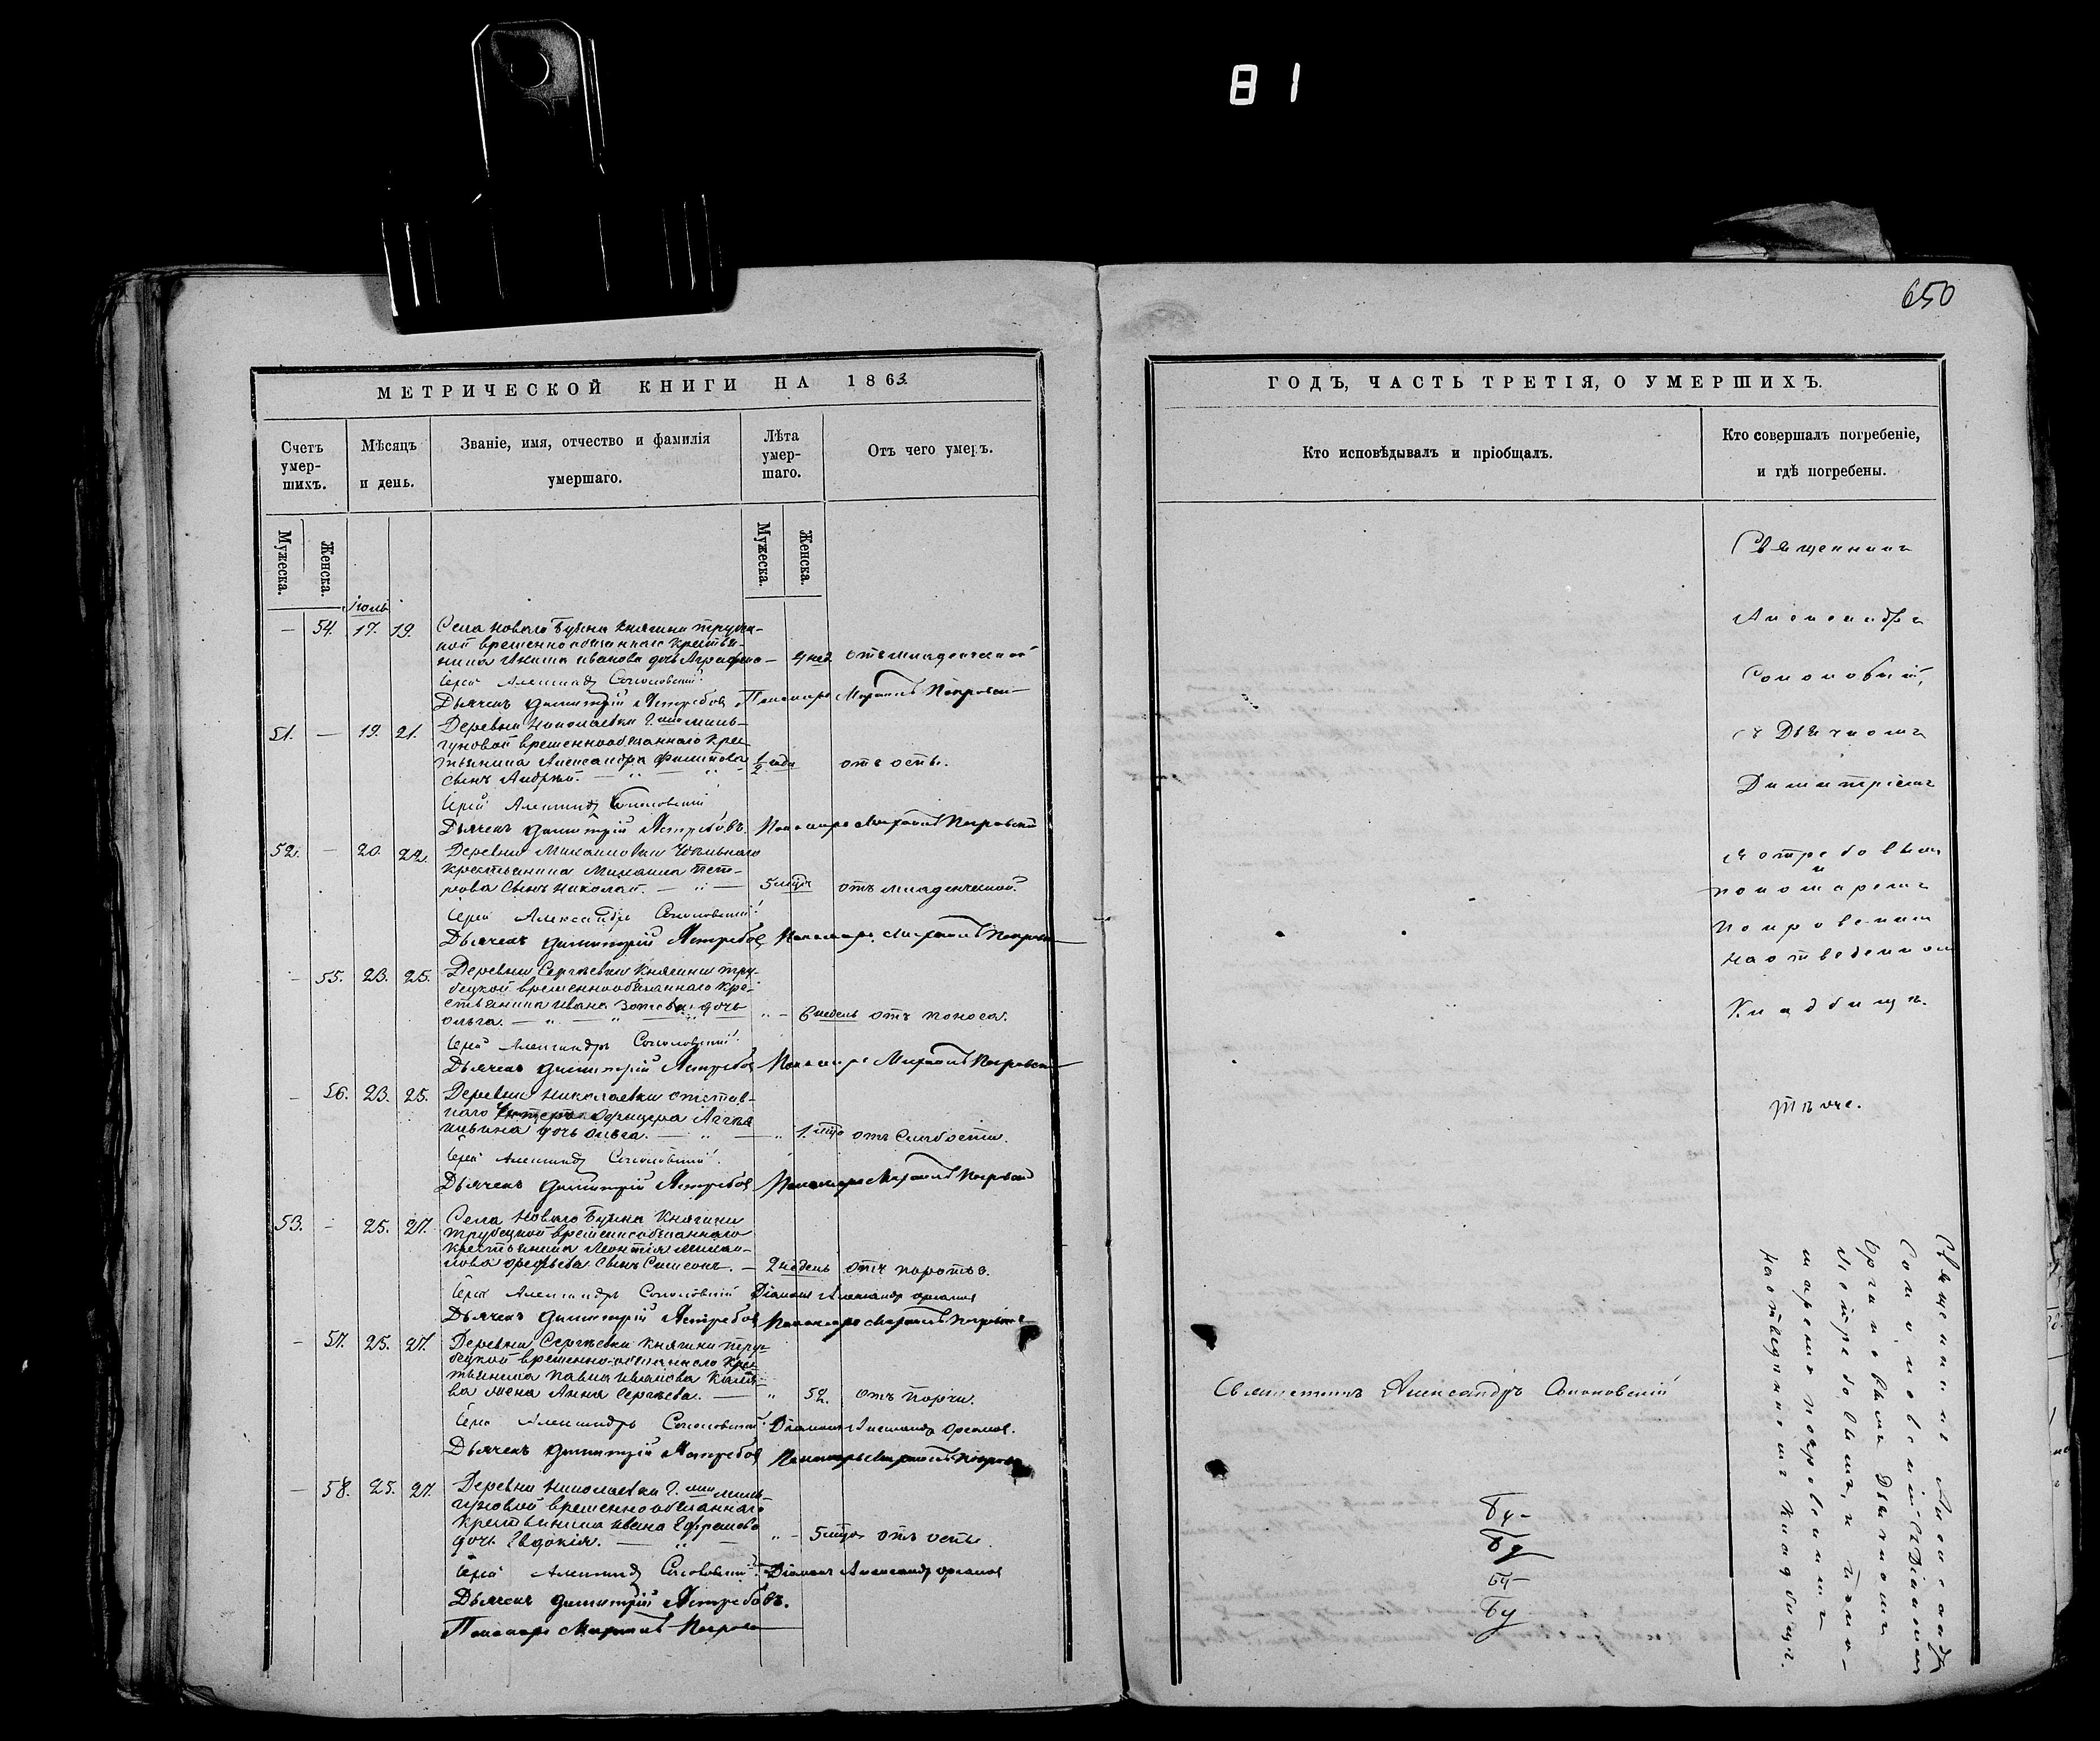 81
650
МЕТРИЧЕСКОЙ КНИГИ НА 1863
Счетъ умер-шихъ.
Мѣсяцъ и день.
Званіе, имя, отчество и фамилія умершаго.
Лѣта умер-шаго.
Отъ чего умеръ.
Мужеска.
Женска.
Мужеска.
Женска.
Іюль
— 54. 17. 19. Села Новаго Буяна Княгини Трубец-
кой временнообязаннаго крестья-
нина Иванова дочь Аграфена — нед. отъ младенческой
Іерей Александръ Соколовскій
Дьячекъ Димитрій Ястребовъ Пономарь Михаилъ Покровскій
51. — 19. 21. Деревни Николаевки Г.
временнообязаннаго крес-
тьянина Александра Филипова 1/2 года отъ оспы.
сынъ Андрей.
Іерей Александръ Соколовскій
Дьячекъ Димитрій Ястребовъ. Пономарь Михаилъ Покровскій
52. — 20. 22. Деревни Михайловки
крестьянина Михаила Пет-
рова сынъ Николай. 5 отъ младенческой.
Іерей Александръ Соколовскій
Дьячекъ Димитрій Ястребовъ Пономарь Михаилъ Покровскій
— 55. 23. 25. Деревни Сергѣевки Княгини Тру-
бецкой временнообязаннаго кре-
стьянина Ивана Зотова дочь
Ольга. 6 недель отъ поноса.
Іерей Александръ Соколовскій
Дьячекъ Димитрій Ястребовъ Пономарь Михаилъ Покровскій
— 56. 23. 25. Деревни Николаевки отстав-
наго офицера
дочь Ольга. 1. отъ слабости.
Іерей Александръ Соколовскій
Дьячекъ Димитрій Ястребовъ Пономарь Михаилъ Покровскій
53. — 25. 27. Села Новаго Буяна Княгини
Трубецкой временнообязаннаго
крестьянина Леонтія Михаи-
лова сынъ Симеонъ. — 2 недель отъ
Іерей Александръ Соколовскій Діаконъ Александръ
Дьячекъ Димитрій Ястребовъ Пономарь Михаилъ Покровскій
— 57. 25. 27. Деревни Сергѣевки Княгини Тру-
бецкой временно-обязаннаго крес-
тьянина Павла Иванова
жена Анна Сергѣева. 52. отъ порчи.
Іерей Александръ Соколовскій Діаконъ Александръ
Дьячекъ Димитрій Ястребовъ Пономарь Михаилъ Покровскій
— 58. 25. 27. Деревни Николаевки Г.
временнообязаннаго
крестьянина Ивана Ефремова
дочь Евдокія. 5 отъ оспы.
Іерей Александръ Соколовскій Діаконъ Александръ
Дьячекъ Димитрій Ястребовъ.
Пономарь Михаилъ Покровскій
ГОДЪ, ЧАСТЬ ТРЕТІЯ, О УМЕРШИХЪ.
Кто исповѣдывалъ и пріобщалъ.
Кто совершалъ погребеніе, и гдѣ погребены.
Священникъ
Александръ
Соколовскій,
съ Дьячкомъ
Димитріемъ
Ястребовымъ
и
пономаремъ
Покровскимъ
на отведенномъ
Кладбищѣ.
Тѣ же.
Священникъ Александръ Соколовскій
Священникъ Александръ
Соколовскій съ Діакономъ
Дьячкомъ
Ястребовымъ, и поно-
маремъ Покровскимъ
на отведенномъ Кладбищѣ.